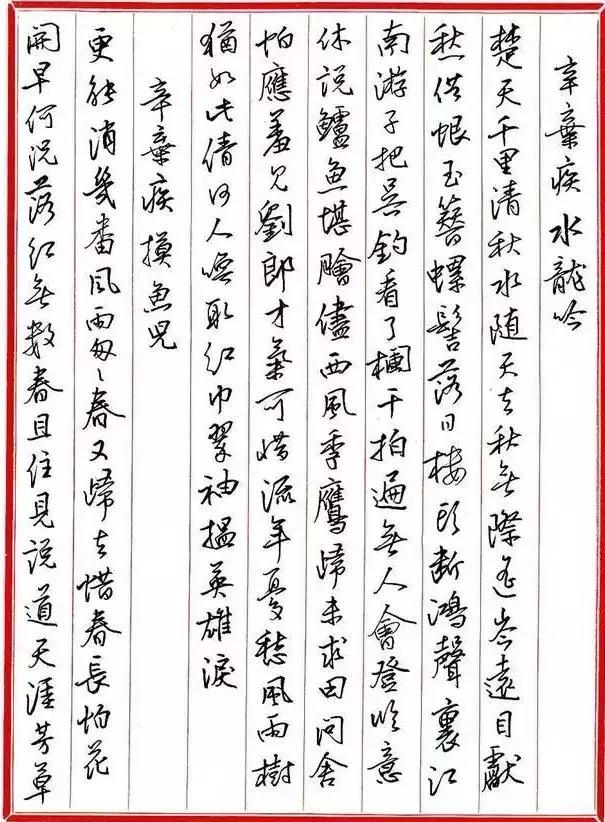 辛棄疾水龍吟
楚天千里清秋水随天去秋無際遙岑遠目獻
愁供恨玉簪螺髻落日樓頭斷鴻聲裏江
南游子把吳鈎看了欄干拍遍無人會登臨意
休說鱸魚堪膾儘西風季鷹歸未求田問舍
怕應羞見劉郎才氣可惜流年憂愁風雨樹
猶如此倩何人喚取紅巾翠袖搵英雄淚
辛棄疾摸魚兒
更能消幾番風雨匆〻春又歸去惜春長怕花
開早何況落紅無數春且住見說道天涯芳草